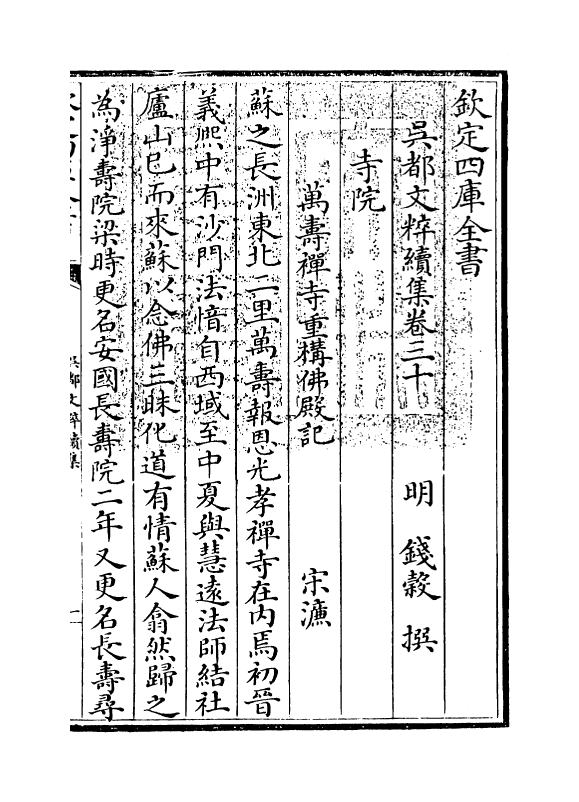 欽定四庫全書
吳都文粹續集卷三十
明 錢榖 撰
寺院
萬壽禪寺重構佛殿記 宋濂
蘇之長洲東北二里萬壽報恩光孝禪寺在内焉初晉
義熙中有沙門法愔自西域至中夏與慧遠法師結社
廬山已而來蘇以念佛三昧化道有情蘇人翕然歸之
為淨壽院梁時更名安國長壽院二年又更名長壽尋
吳都文粹續集
一